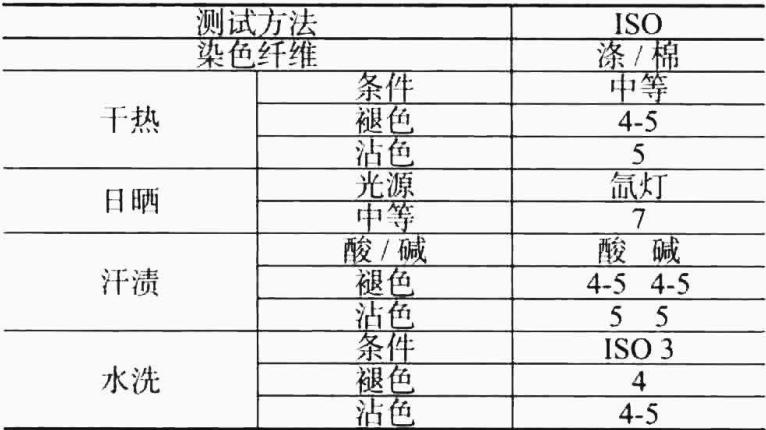 测试方法 ISO
染色纤维 涤/棉
干热 条件 中等
褪色 4-5
沾色 5
日晒 光源 氙灯
中等 7
汗渍 酸/碱 酸 碱
褪色 4-5 4-5
沾色 5 5
水洗 条件 ISO 3
褪色 4
沾色 4-5